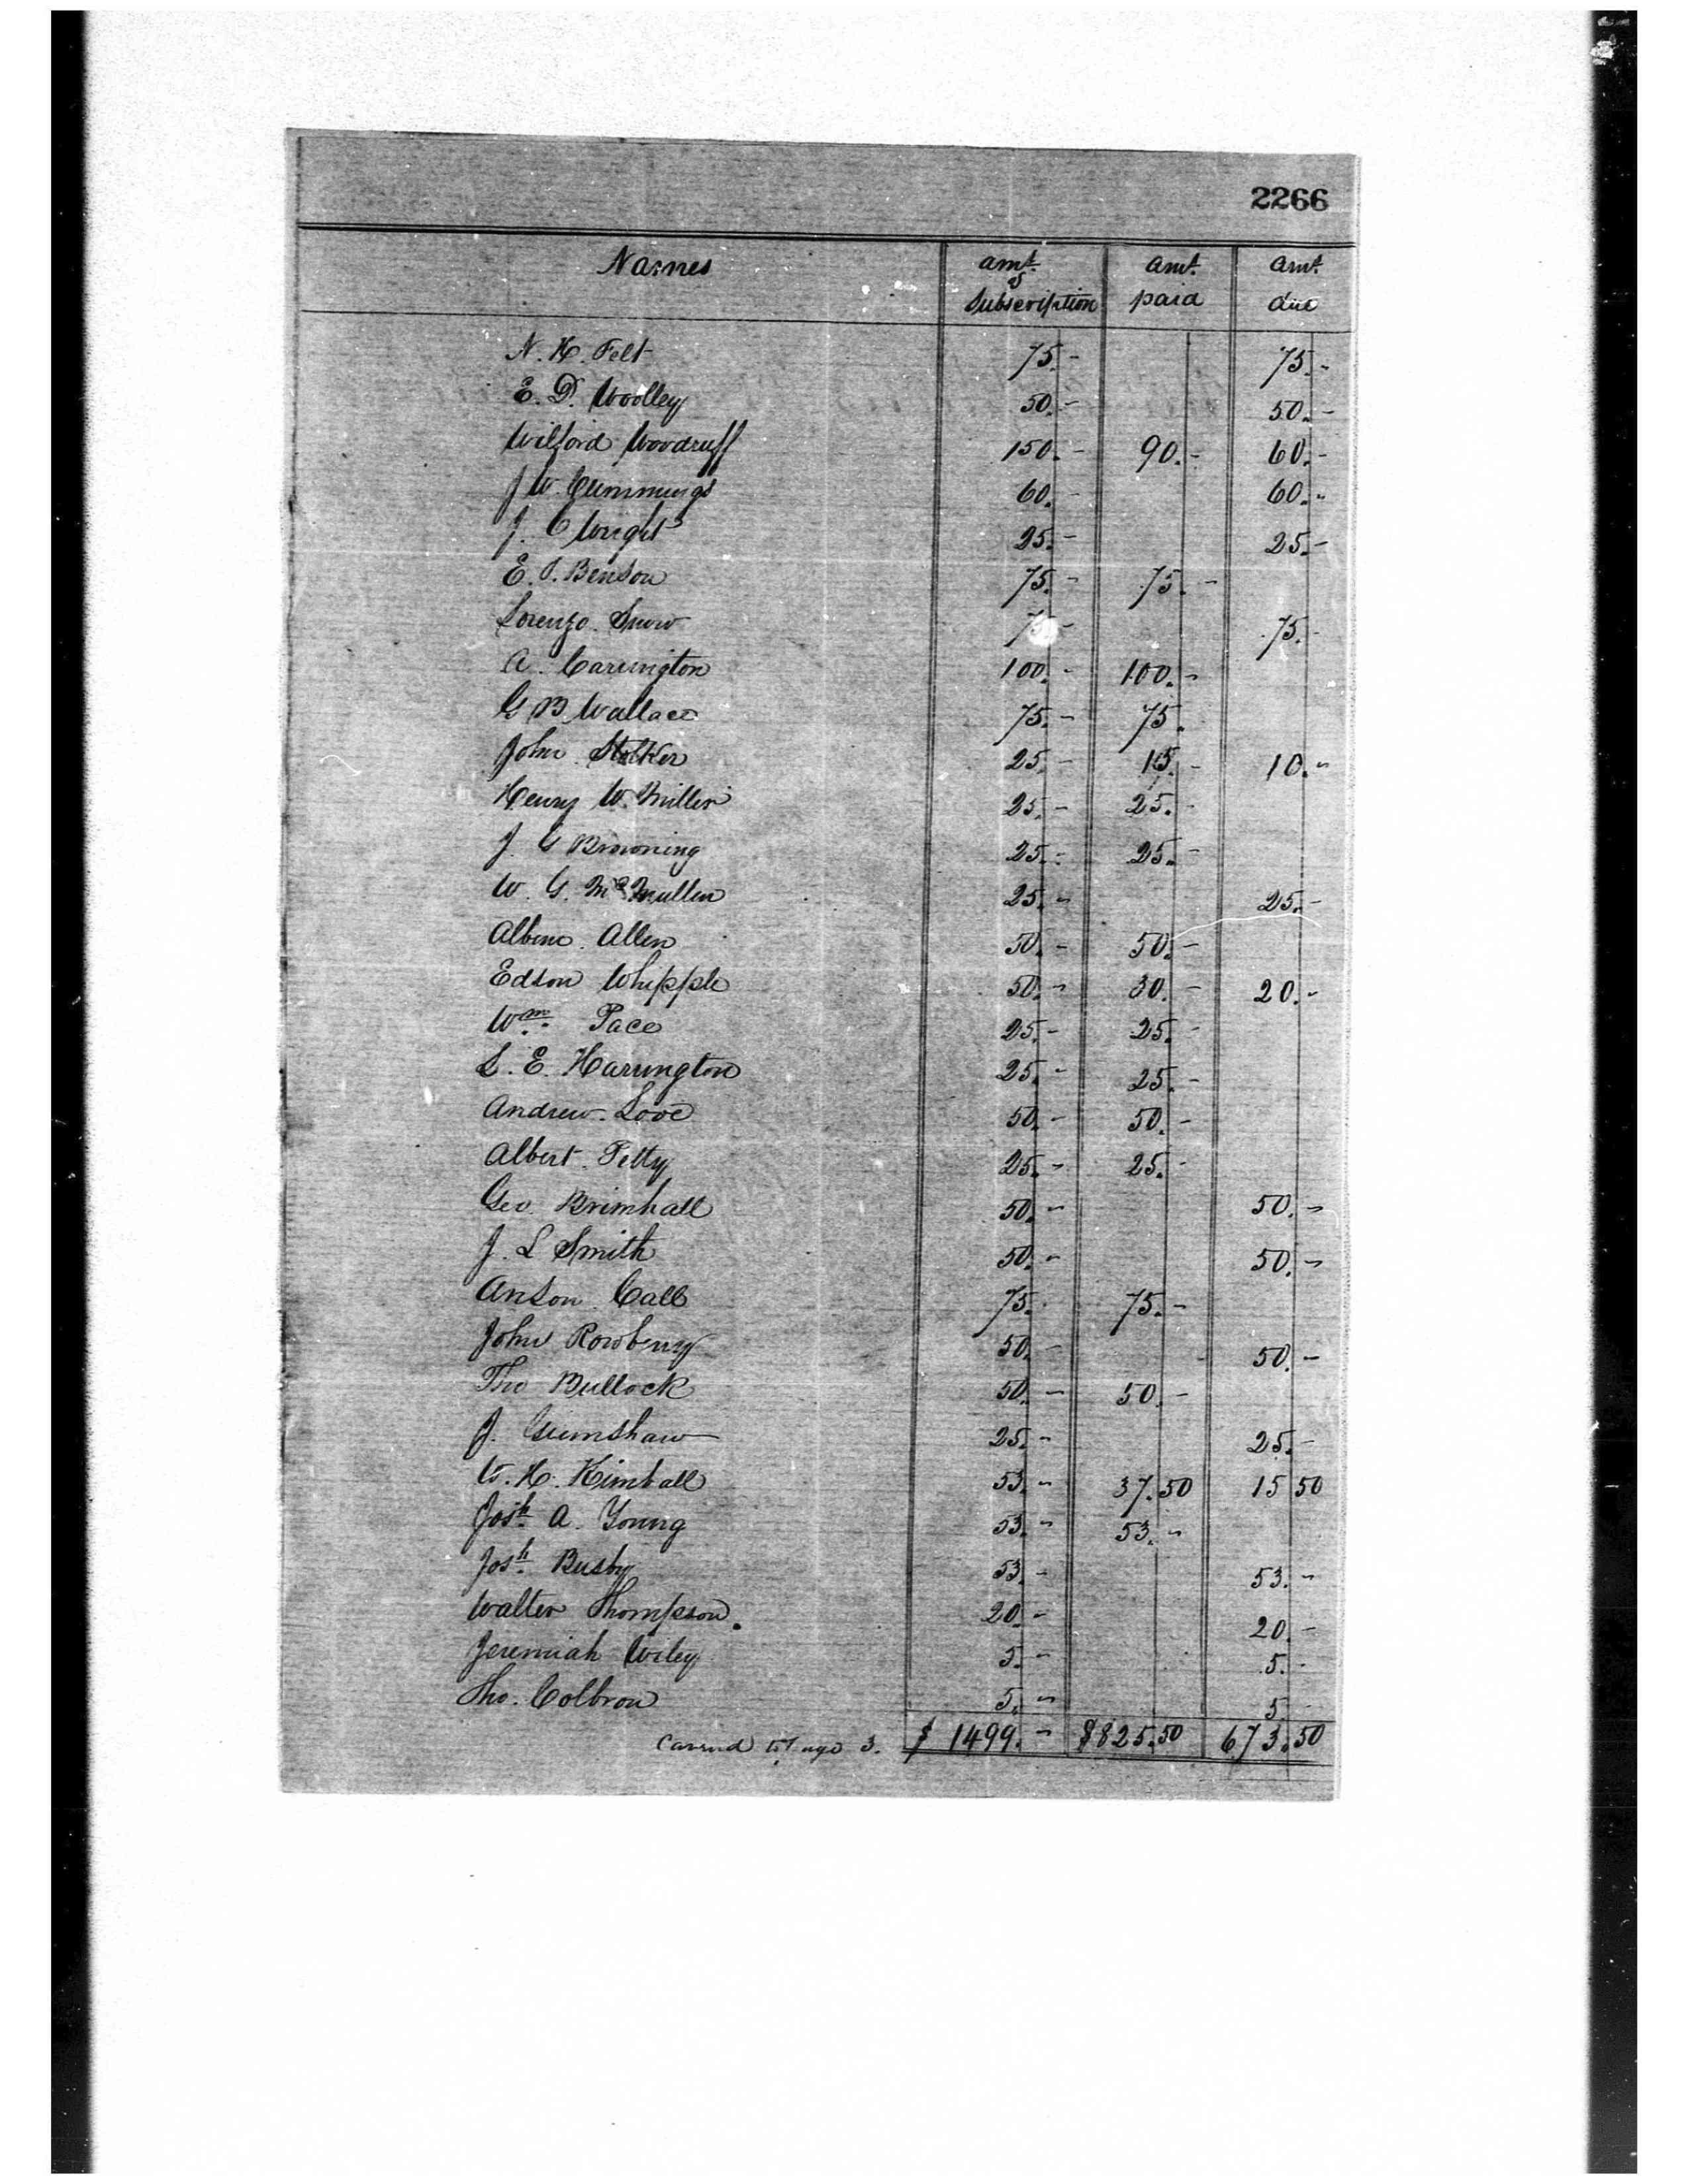 2266
Names amt. of Subscription amt. paid amt. due
N. H. Felt 75.- 75.-
E. D. Woolley 50.- 50.-
Wilford Woodruff 150.- 90.- 60.-
J W. Cummings 60.- 60.-
J. C Wright 25.- 25.-
E. T. Benson 75.- 75.-
Lorenzo Snow 75.- 75.-
A. Carrington 100.- 100.-
G B Wallace 75.- 75.
John Stalker 25.- 15.- 10.-
Henry W. Miller 25.- 25.-
J. G Browning 25.- 25.-
W. G. McMullen 25.- 25.-
Albern Allen 50.- 50.-
Edson Whipple 50.- 30.- 20.-
Wm. Pace 25.- 25.-
L. E. Harrington 25.- 25.-
Andrew Love 50.- 50.-
Albert Petty 25.- 25.-
Geo. Brimhall 50.- 50.-
J. L Smith 50.- 50.-
Anson Call 75.- 75.-
John Rowberry 50.- 50.-
Tho Bullock 50.- 50.-
J. Grimshaw 25.- 25.-
W. H. Kimball 53.- 37.50 15 50
Josh. A. Young 53.- 53.-
Josh. Busby 53.- 53.-
Walter Thompson. 20.- 20.-
Jeremiah Wiley 5.- 5.-
Tho. Colbron 5.- 5-
Carried to Page 3. $ 1499.- $825.50 673.50